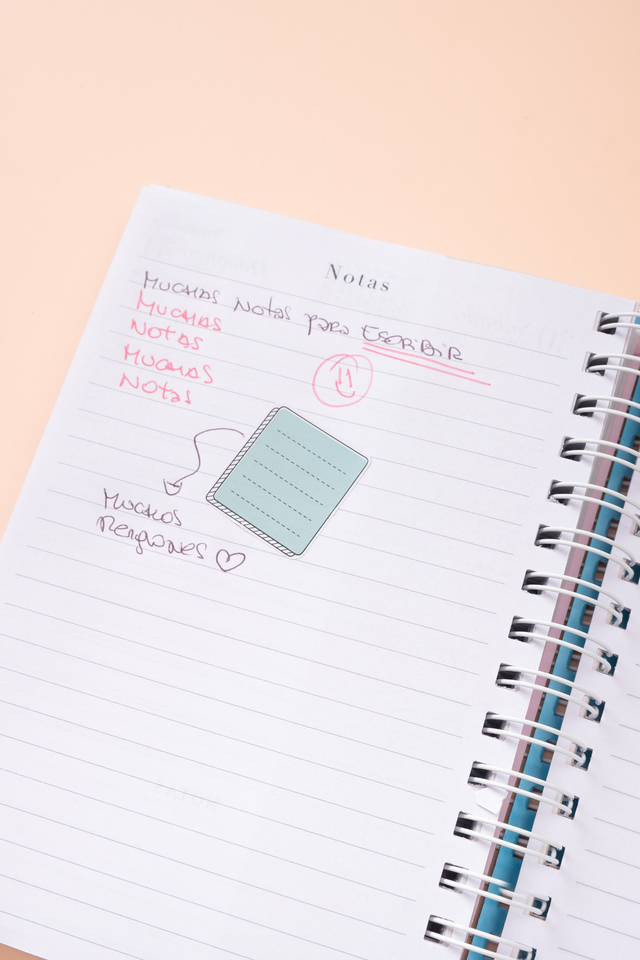 Notas
MUCHAS NOTAS para ESCRIBIR
MUCHAS
NOTAS
MUCHAS
NOTAS
MUCHOS
renglones